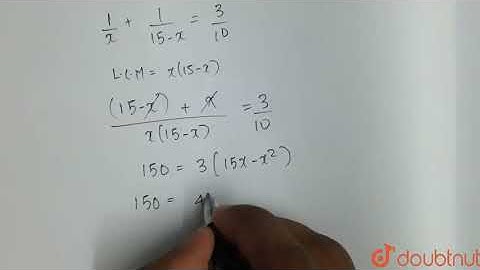 1/x + 1/15-x = 3/10
L.C.M = x(15-x)
(15-x) + x / x(15-x) = 3/10
150 = 3(15x-x²)
150 = 4
doubtnut